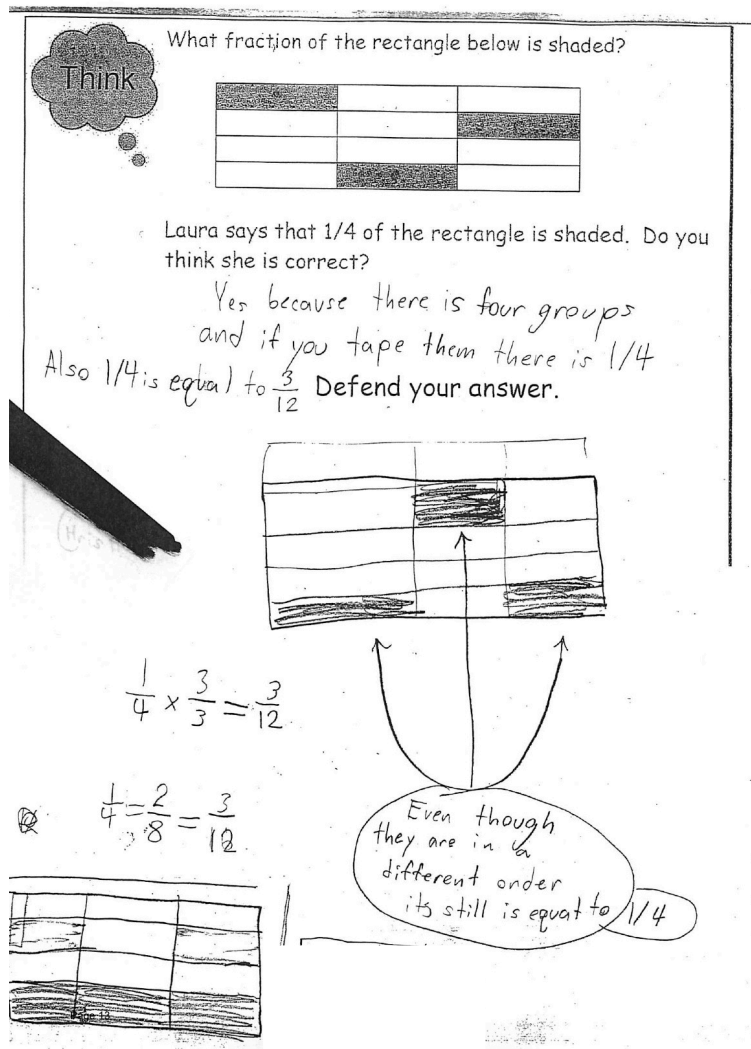 What fraction of the rectangle below is shaded?
Think
Laura says that 1/4 of the rectangle is shaded. Do you
think she is correct?
Yes because there is four groups
and if you tape them there is 1/4
Also 1/4 is equal to 3/12 Defend your answer.
1/4 × 3/3 = 3/12
1/4 = 2/8 = 3/12
Even though
they are in a
different order
its still is equat to 1/4
Page 13